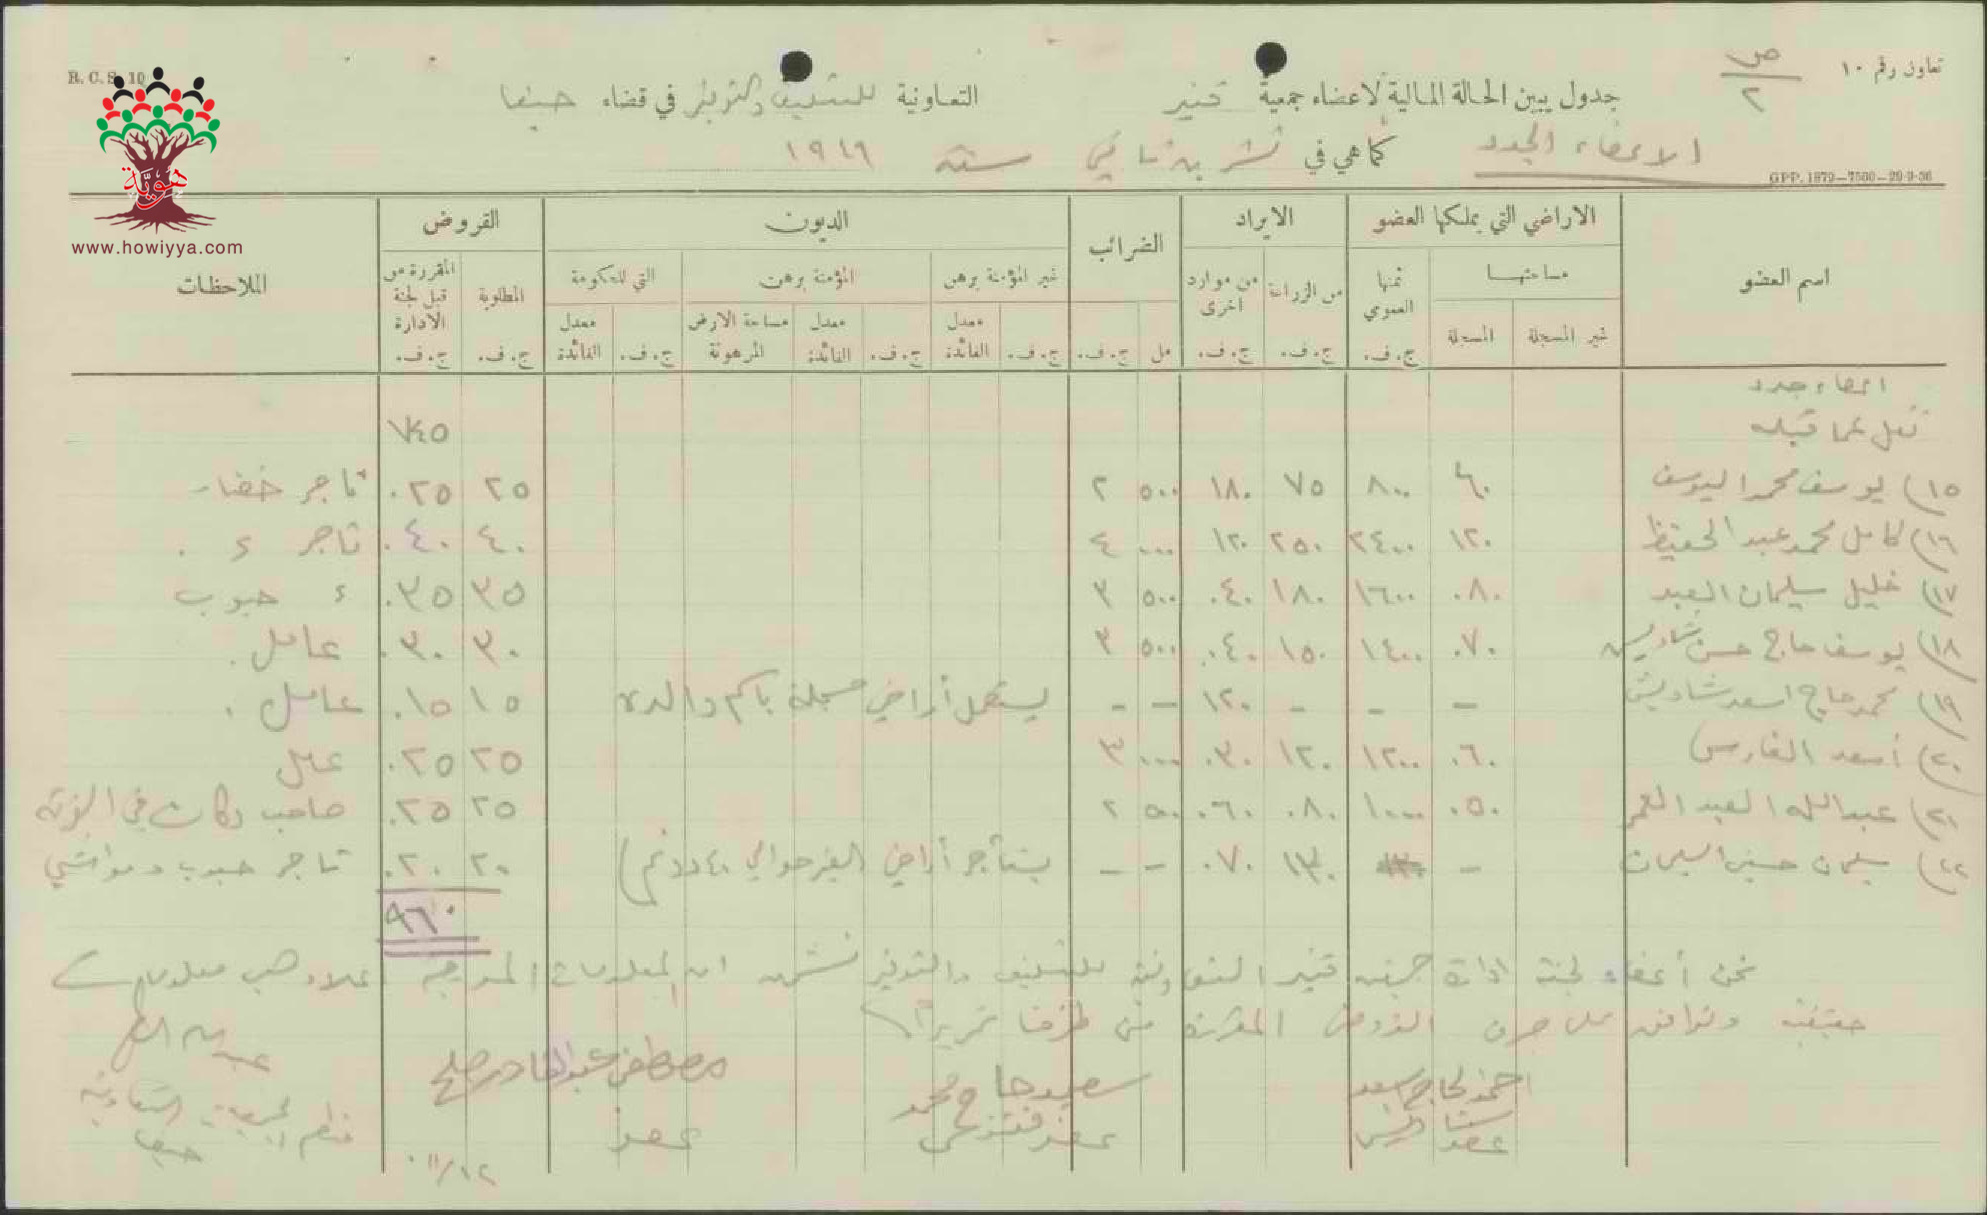 تعاون رقم ١٠
ص ٢
R. C. S. 10
جدول يبين الحالة المالية لاعضاء جمعية قنير التعاونية للتسليف والتوفير في قضاء حيفا
الاعضاء الجدد كما هي في تشرين ثاني سنة ١٩٤٦
GPP. 1879—7500—29-9-36
هويّة
www.howiyya.com
اسم العضو الاراضي التي يملكها العضو الايراد الضرائب الديون القروض الملاحظات
مساحتها ثمنها العمومي من الزراعة من موارد اخرى غير المؤمنة برهن المؤمنة برهن التي للحكومة المطلوبة المقررة من قبل لجنة الادارة
غير المسجلة المسجلة معدل الفائدة معدل الفائدة مساحة الارض المرهونة معدل الفائدة
ج. ف. ج. ف. ج. ف. مل ج. ف. ج. ف. ج. ف. ج. ف. ج. ف. ج. ف.
اعضاء جدد
نقل عما قبله ٧٤٥
١٥) يوسف محمد اليوسف ٦٠ ٨٠٠ ٧٥ ١٨٠ ٥٠٠ ٢ ٢٥ ٠٢٥ تاجر خضار
١٦) كامل محمد عبد الحفيظ ١٢٠ ٢٤٠٠ ٢٥٠ ١٢٠ ٠٠٠ ٤ ٤٠ ٠٤٠ تاجر ء
١٧) خليل سليمان العبد ٠٨٠ ١٦٠٠ ١٨٠ ٠٤٠ ٥٠٠ ٣ ٣٥ ٠٣٥ ء حبوب
١٨) يوسف حاج حسن شاويش ٠٧٠ ١٤٠٠ ١٥٠ ٠٤٠ ٥٠٠ ٣ ٣٠ ٠٣٠ عامل
١٩) محمد حاج اسعد شاويش - - - ١٢٠ - - يستعمل أراضي مسجلة باسم والده ١٥ ٠١٥ عامل
٢٠) أسعد الفارس ٠٦٠ ١٢٠٠ ١٢٠ ٠٣٠ ٠٠٠ ٣ ٢٥ ٠٢٥ عامل
٢١) عبدالله العبد العمر ٠٥٠ ١٠٠٠ ٠٨٠ ٠٦٠ ٥٠٠ ٢ ٢٥ ٠٢٥ صاحب دكان في القرية
٢٢) سليمان حسين السليمان - ١٣٠ ٠٧٠ - - يستأجر أراضي الغير حوالي ٤٠ دونم) ٢٠ ٠٢٠ تاجر حبوب ومواشي
٩٦٠
نحن أعضاء لجنة ادارة جمعية قنير التعاونية للتسليف والتوفير نشهد ان المعلومات المدرجة اعلاه حسب معلوماتنا
حقيقية ونوافق على صرف القروض المقررة من طرفنا تحريرا
احمد الحاج اسعد شاويش سعيد حاج محمد مصطفى عبد القادر صالح
عضو عضو عضو
منظم الجمعيات التعاونية
حيفا
١٢/١١